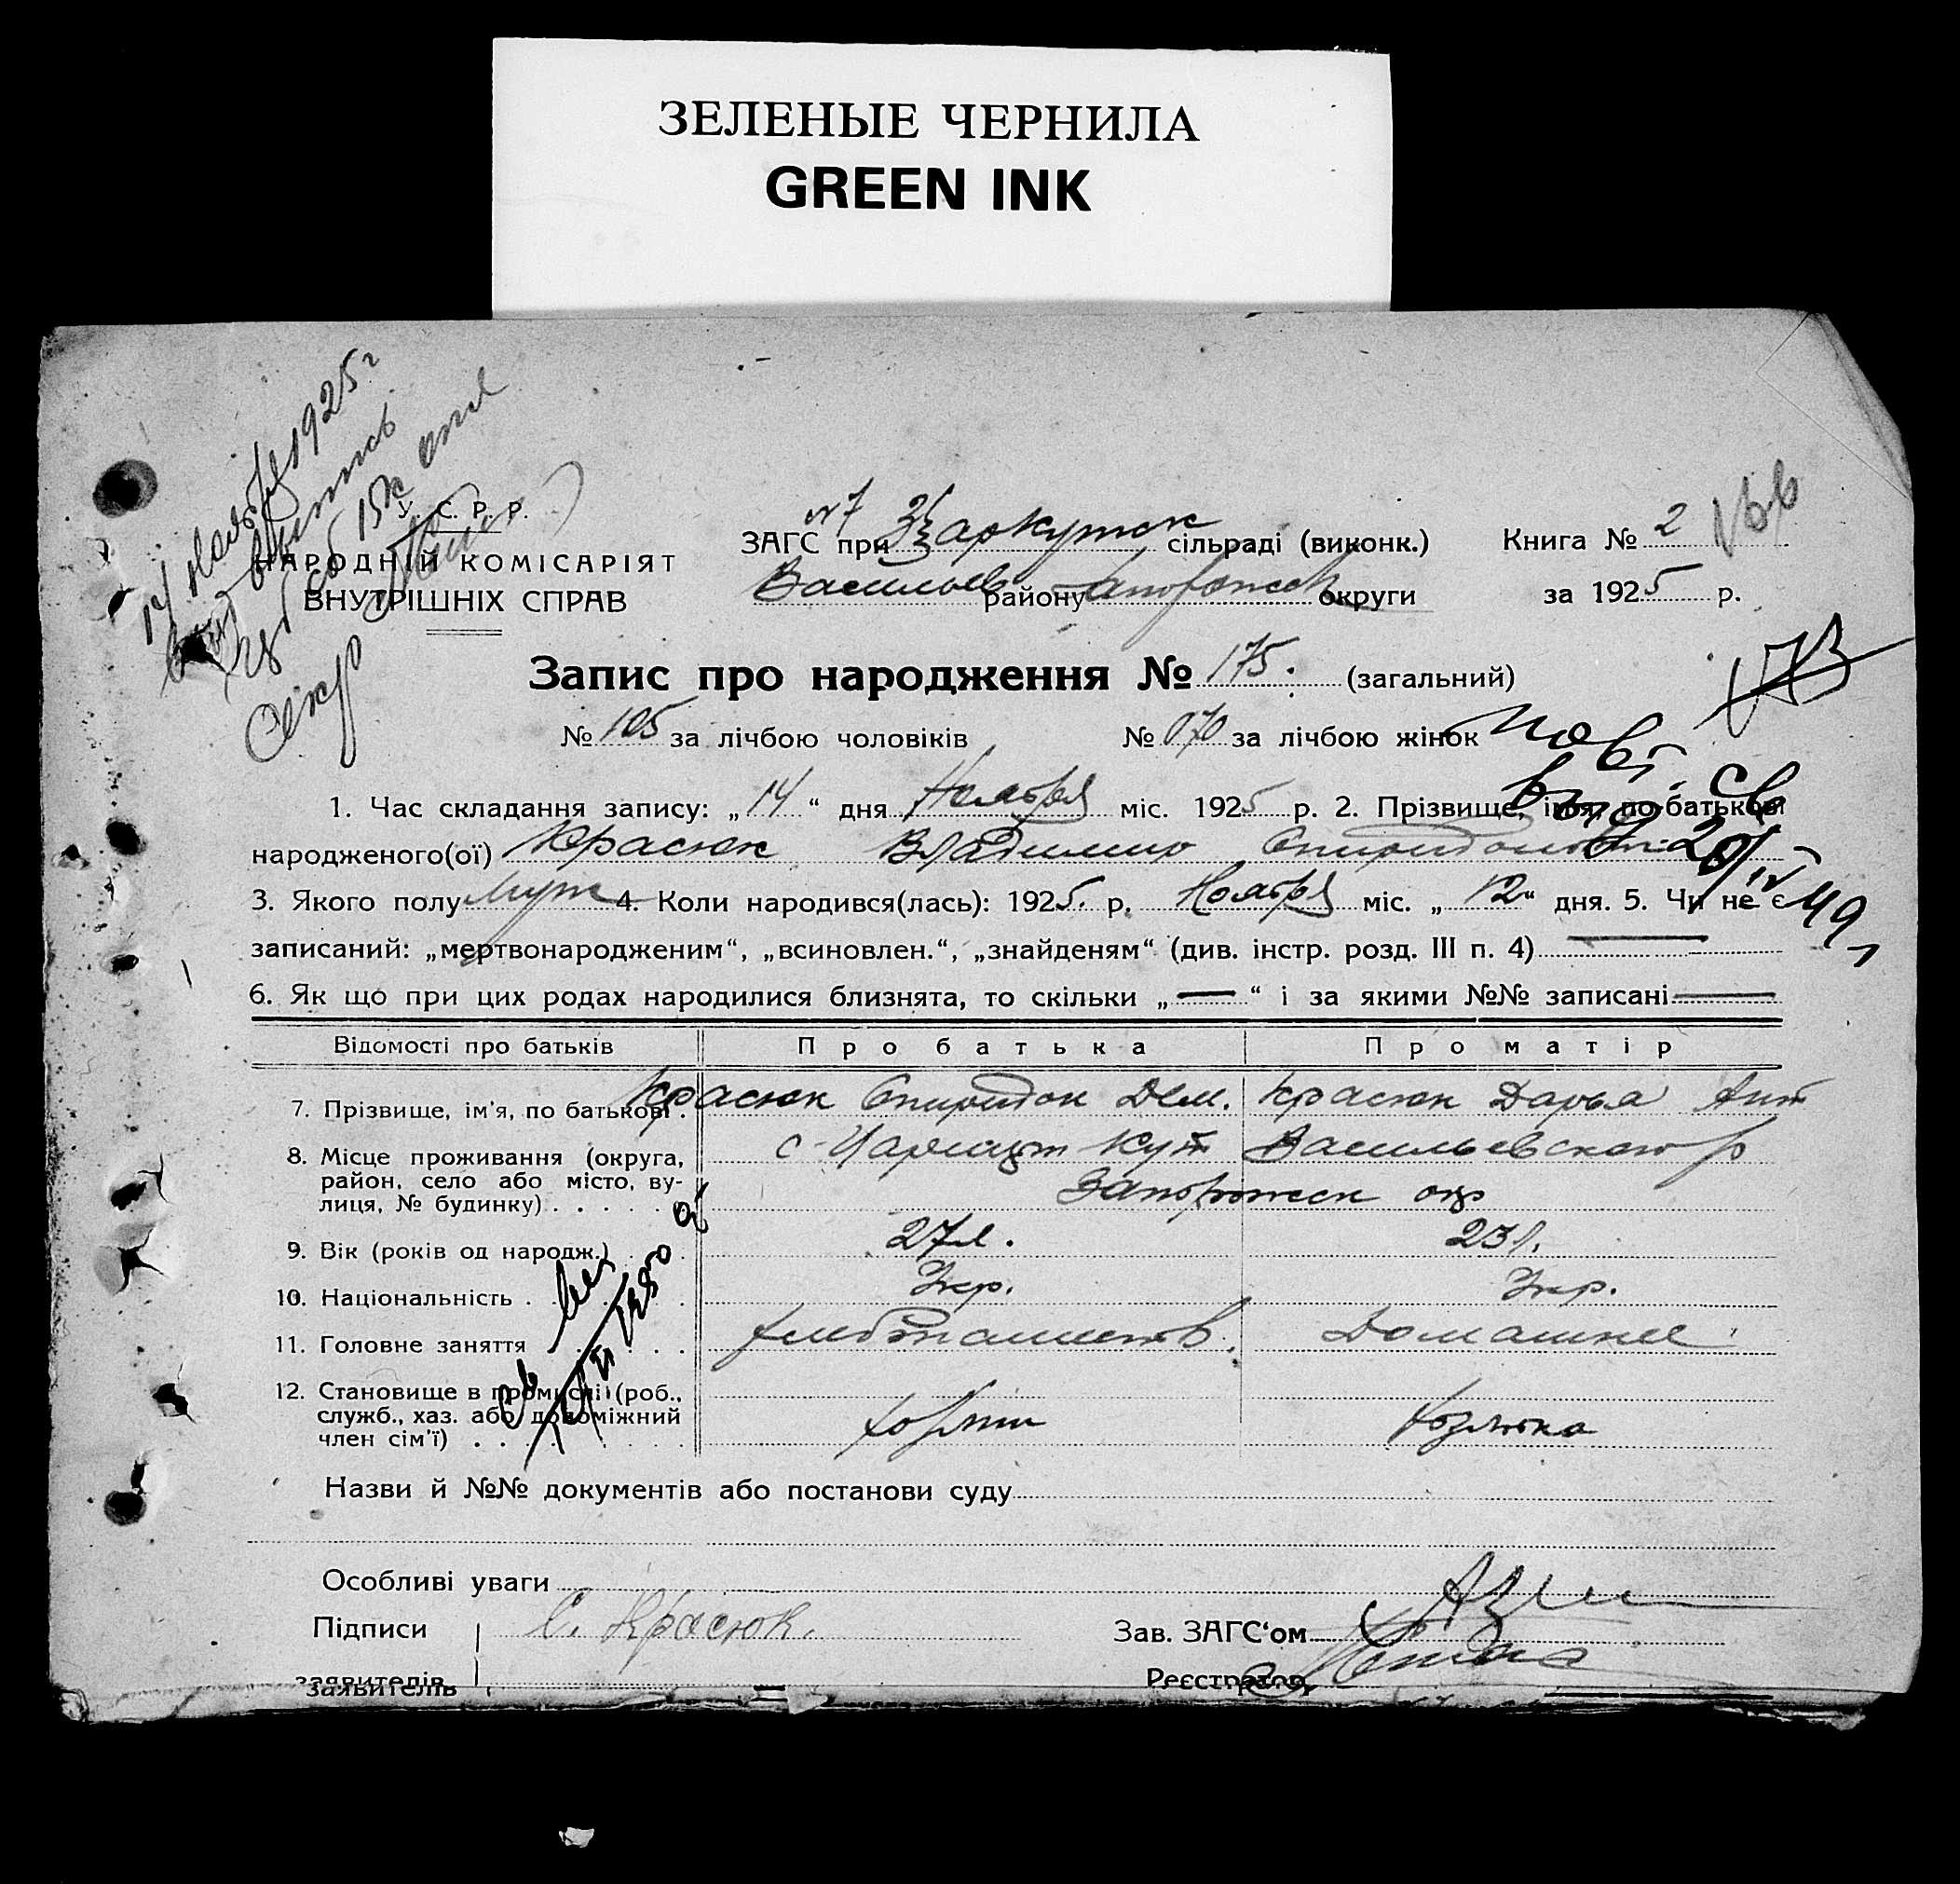 ЗЕЛЕНЫЕ ЧЕРНИЛА
GREEN INK
14 Ноября 1925 г
У. С. Р. Р.
НАРОДНІЙ КОМІСАРІЯТ
ВНУТРІШНІХ СПРАВ
ЗАГС при сільраді (виконк.)
Васильев району Запорожск округи
Книга № 2
за 1925 р.
Запис про народження № 175. (загальний)
№ 105 за лічбою чоловіків № 070 за лічбою жінок
1. Час складання запису: „14“ дня Ноября міс. 1925 р. 2. Прізвище, ім'я, по-батькові
народженого(ої) Красюк Владимир Спиридонович
3. Якого полу муж 4. Коли народився(лась): 1925. р. Ноября міс. „12“ дня. 5. Чи не є
записаний: „мертвонародженим“, „всиновлен.“, „знайденям“ (див. інстр. розд. III п. 4) —
6. Як що при цих родах народилися близнята, то скільки „—“ і за якими №№ записані —
Відомості про батьків Про батька Про матір
7. Прізвище, ім'я, по батькові . Красюк Спиридон Дем. Красюк Дарья Ант
8. Місце проживання (округа,
район, село або місто, ву-
лиця, № будинку) . . . . . с. Кут Васильевского р
Запорожск окр
9. Вік (років од народж.) . . . 27 л. 23 л.
10. Національність . . . . . Укр. Укр.
11. Головне заняття . . . . . Хлебопашеств. Домашнее
12. Становище в промислі (роб.,
служб., хаз. або допоміжний
член сім'ї) . . . . . . .
Назви й №№ документів або постанови суду
Особливі уваги
Підписи С. Красюк. Зав. ЗАГС'ом
заявителів Реєстратор
заявителів